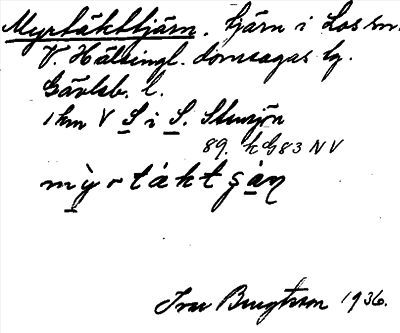 Myrtäkttjärn. Tjärn i Los sn.
V. Hälsingl. domsagas tg.
Gävleb. l.
1 km V S i S. Slussjön
89. k G83 NV
Ivar Bengtsson 1936.